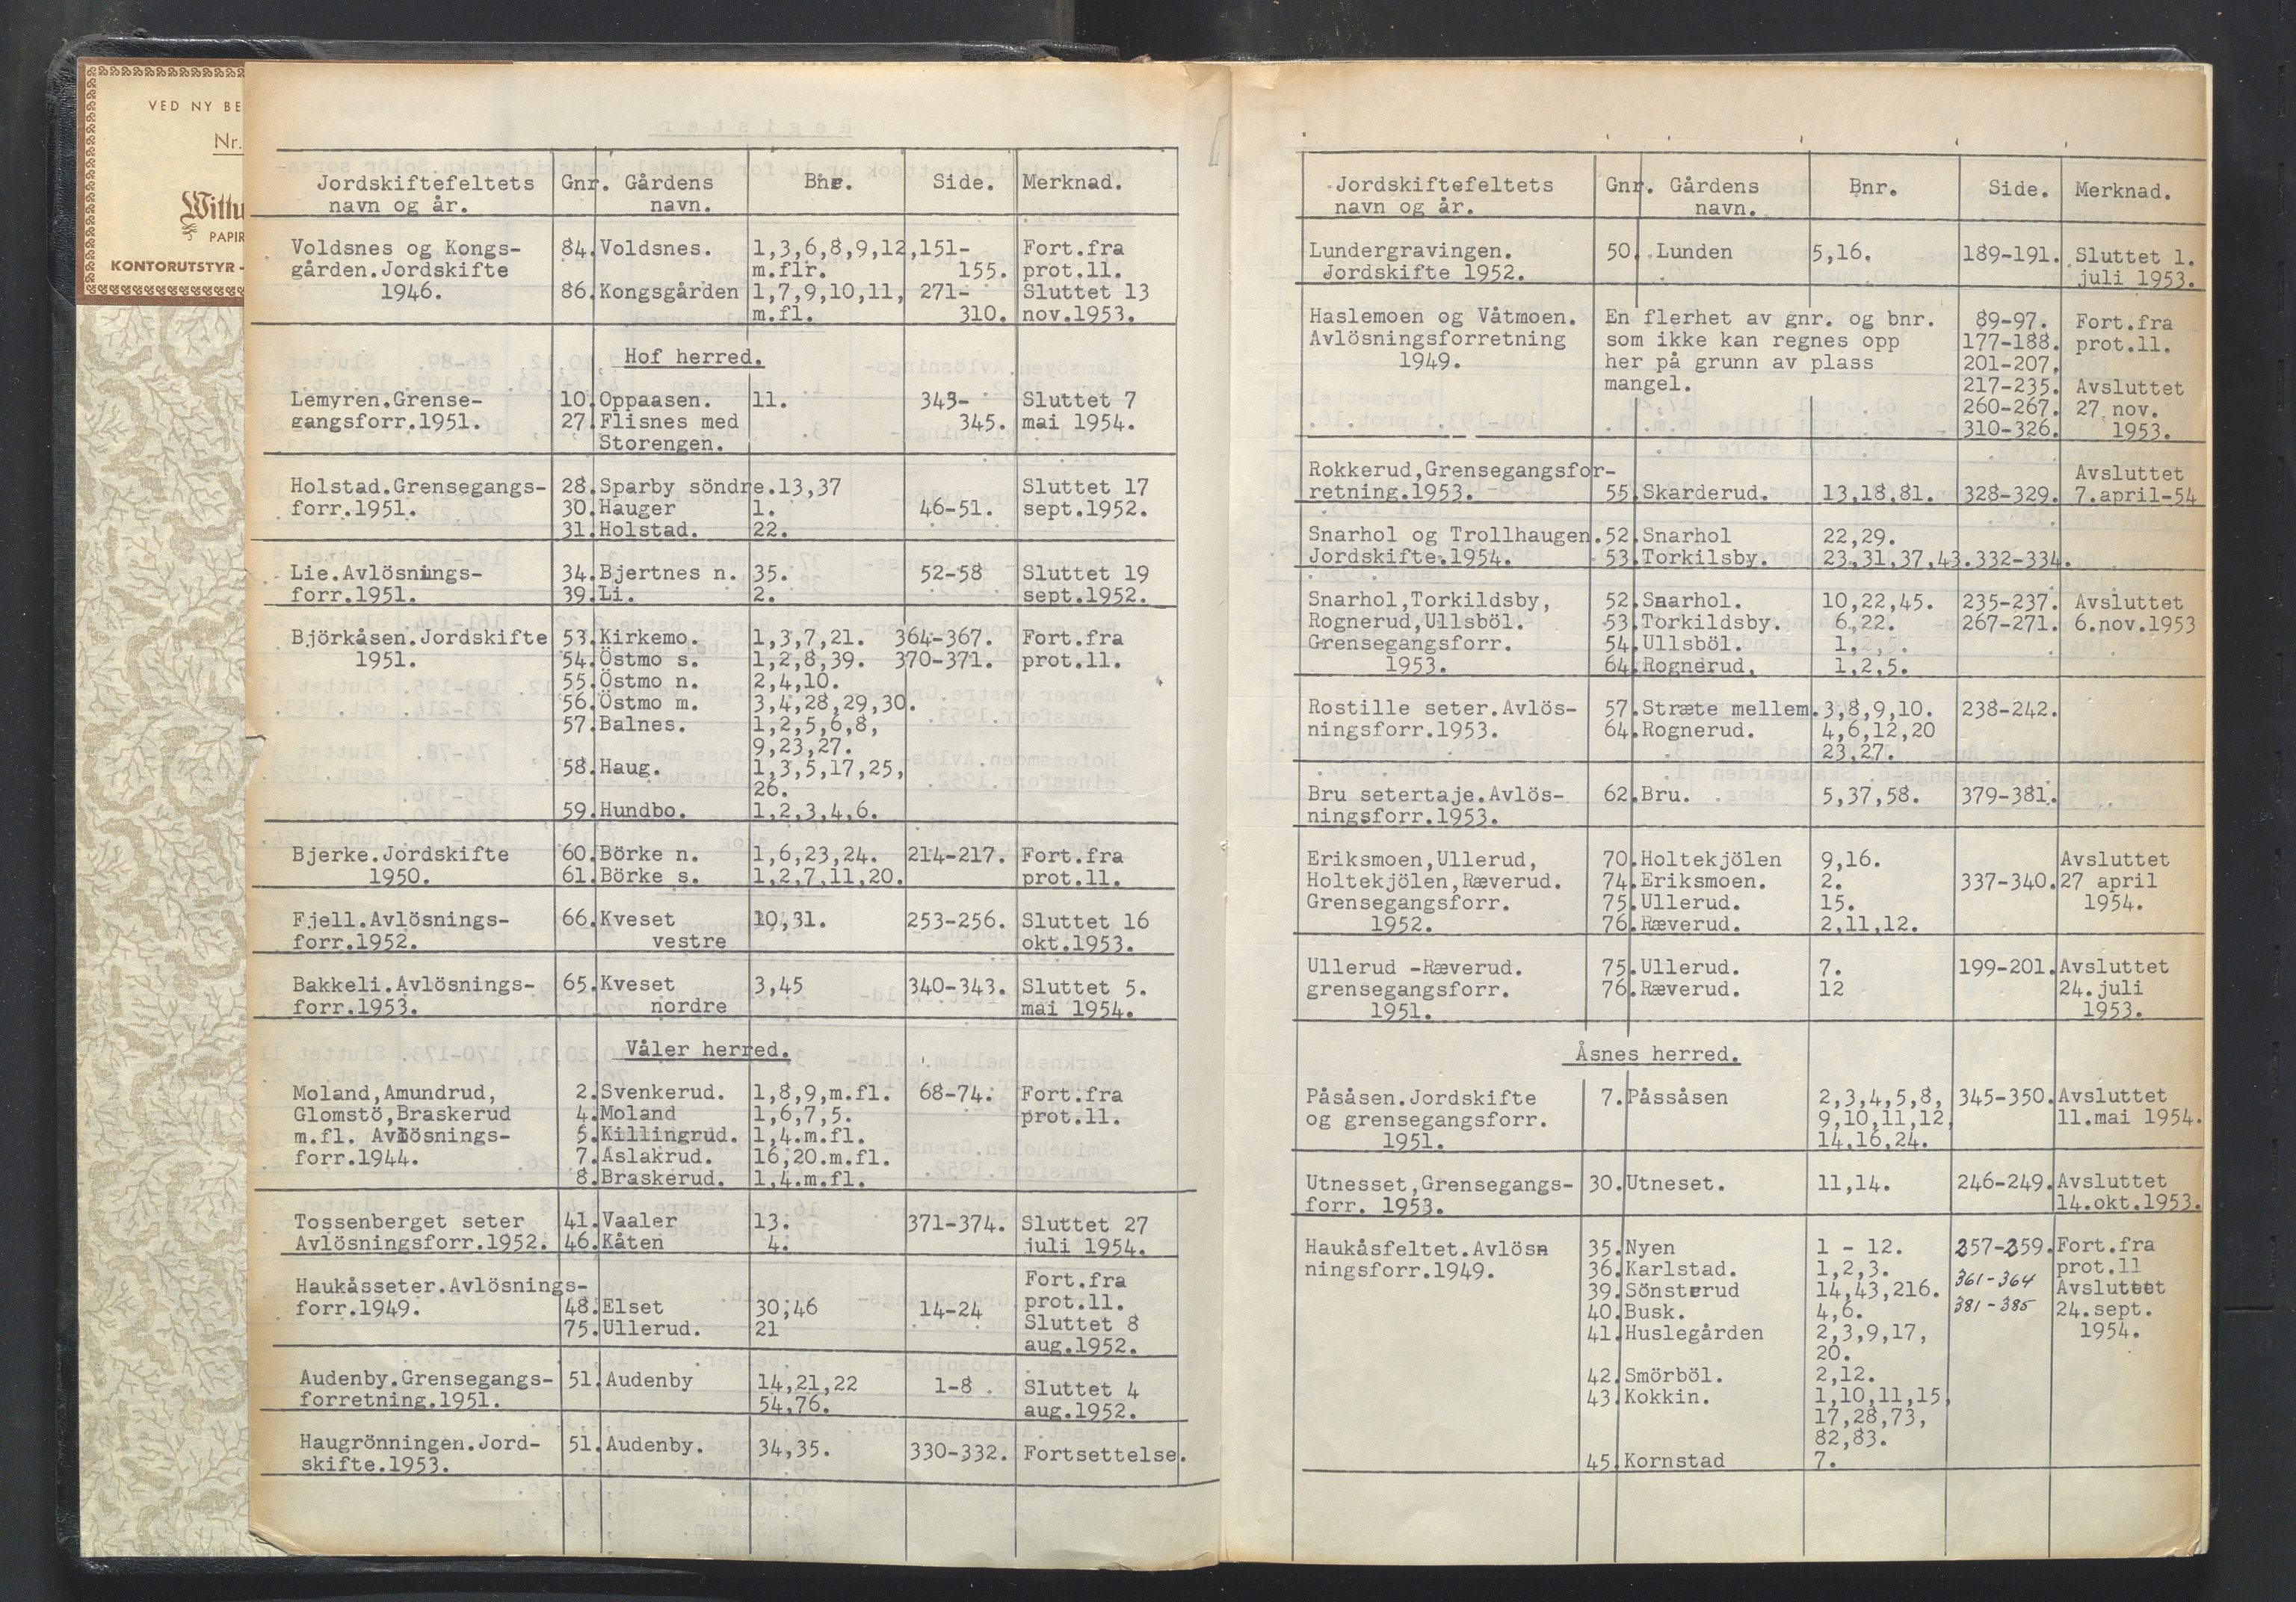 VED NY BE
Nr.
Wittu
PAPIR
KONTORUTSTYR -
Jordskiftefeltets navn og år. Gnr. Gårdens navn. Bnr. Side. Merknad.
Voldsnes og Kongs- 84. Voldsnes. 1,3,6,8,9,12, 151- Fort.fra
gården.Jordskifte m.flr. 155. prot.11.
1946. 86. Kongsgården 1,7,9,10,11, 271- Sluttet 13
m.fl. 310. nov.1953.
Hof herred.
Lemyren.Grense- 10. Oppaasen. 11. 343- Sluttet 7
gangsforr.1951. 27. Flisnes med 345. mai 1954.
Storengen.
Holstad.Grensegangs- 28. Sparby söndre. 13,37 Sluttet 17
forr.1951. 30. Hauger 1. 46-51. sept.1952.
31. Holstad. 22.
Lie.Avlösnings- 34. Bjertnes n. 35. 52-58 Sluttet 19
forr.1951. 39. Li. 2. sept.1952.
Björkåsen.Jordskifte 53. Kirkemo. 1,3,7,21. 364-367. Fort.fra
1951. 54. Östmo s. 1,2,8,39. 370-371. prot.11.
55. Östmo n. 2,4,10.
56. Östmo m. 3,4,28,29,30.
57. Balnes. 1,2,5,6,8,
9,23,27.
58. Haug. 1,3,5,17,25,
26.
59. Hundbo. 1,2,3,4,6.
Bjerke.Jordskifte 60. Börke n. 1,6,23,24. 214-217. Fort.fra
1950. 61. Börke s. 1,2,7,11,20. prot.11.
Fjell.Avlösnings- 66. Kveset 10,31. 253-256. Sluttet 16
forr.1952. vestre okt.1953.
Bakkeli.Avlösnings- 65. Kveset 3,45 340-343. Sluttet 5.
forr.1953. nordre mai 1954.
Våler herred.
Moland,Amundrud, 2. Svenkerud. 1,8,9,m.fl. 68-74. Fort.fra
Glomstö,Braskerud 4. Moland 1,6,7,5. prot.11.
m.fl. Avlösnings- 5. Killingrud. 1,4.m.fl.
forr.1944. 7. Aslakrud. 16,20.m.fl.
8. Braskerud. 1,4.m.fl.
Tossenberget seter 41. Vaaler 13. 371-374. Sluttet 27
Avlösningsforr.1952. 46. Kåten 4. juli 1954.
Haukåsseter.Avlösnings- Fort.fra
forr.1949. 48. Elset 30,46 14-24 prot.11.
75. Ullerud. 21 Sluttet 8
aug.1952.
Audenby.Grensegangs- 51. Audenby 14,21,22 1-8 Sluttet 4
forretning.1951. 54,76. aug.1952.
Haugrönningen.Jord- 51. Audenby. 34,35. 330-332. Fortsettelse.
skifte.1953.
Jordskiftefeltets navn og år. Gnr. Gårdens navn. Bnr. Side. Merknad.
Lundergravingen. 50. Lunden 5,16. 189-191. Sluttet 1.
Jordskifte 1952. juli 1953.
Haslemoen og Våtmoen. En flerhet av gnr. og bnr. 89-97. Fort.fra
Avlösningsforretning som ikke kan regnes opp 177-188. prot.11.
1949. her på grunn av plass 201-207,
mangel. 217-235. Avsluttet
260-267. 27 nov.
310-326. 1953.
Rokkerud,Grensegangsfor- Avsluttet
retning.1953. 55. Skarderud. 13,18,81. 328-329. 7.april-54
Snarhol og Trollhaugen. 52. Snarhol 22,29.
Jordskifte.1954. 53. Torkilsby. 23,31,37,43. 332-334.
Snarhol,Torkildsby, 52. Snarhol. 10,22,45. 235-237. Avsluttet
Rognerud,Ullsböl. 53. Torkildsby. 6,22. 267-271. 6.nov.1953
Grensegangsforr. 54. Ullsböl. 1,2,5.
1953. 64. Rognerud, 1,2,5.
Rostille seter.Avlös- 57. Stræte mellem. 3,8,9,10. 238-242.
ningsforr.1953. 64. Rognerud. 4,6,12,20
23,27.
Bru setertaje.Avlös- 62. Bru. 5,37,58. 379-381.
ningsforr.1953.
Eriksmoen,Ullerud, 70. Holtekjölen 9,16. Avsluttet
Holtekjölen,Ræverud. 74. Eriksmoen. 2. 337-340. 27 april
Grensegangsforr. 75. Ullerud. 15. 1954.
1952. 76. Ræverud. 2,11,12.
Ullerud -Ræverud. 75. Ullerud. 7. 199-201. Avsluttet
grensegangsforr. 76. Ræverud. 12 24.juli
1951. 1953.
Åsnes herred.
Påsåsen.Jordskifte 7. Påssåsen 2,3,4,5,8, 345-350. Avsluttet
og grensegangsforr. 9,10,11,12, 11.mai 1954.
1951. 14,16,24.
Utnesset,Grensegangs- 30. Utneset. 11,14. 246-249. Avsluttet
forr. 1953. 14.okt.1953.
Haukåsfeltet.Avlösn 35. Nyen 1 - 12. 257-259. Fort.fra
ningsforr.1949. 36. Karlstad. 1,2,3. 361-364 prot.11
39. Sönsterud 14,43,216. Avsluttet
40. Busk. 4,6. 381-385 24.sept.
41. Huslegården 2,3,9,17, 1954.
20.
42. Smörböl. 2,12.
43. Kokkin. 1,10,11,15,
17,28,73,
82,83.
45. Kornstad 7.